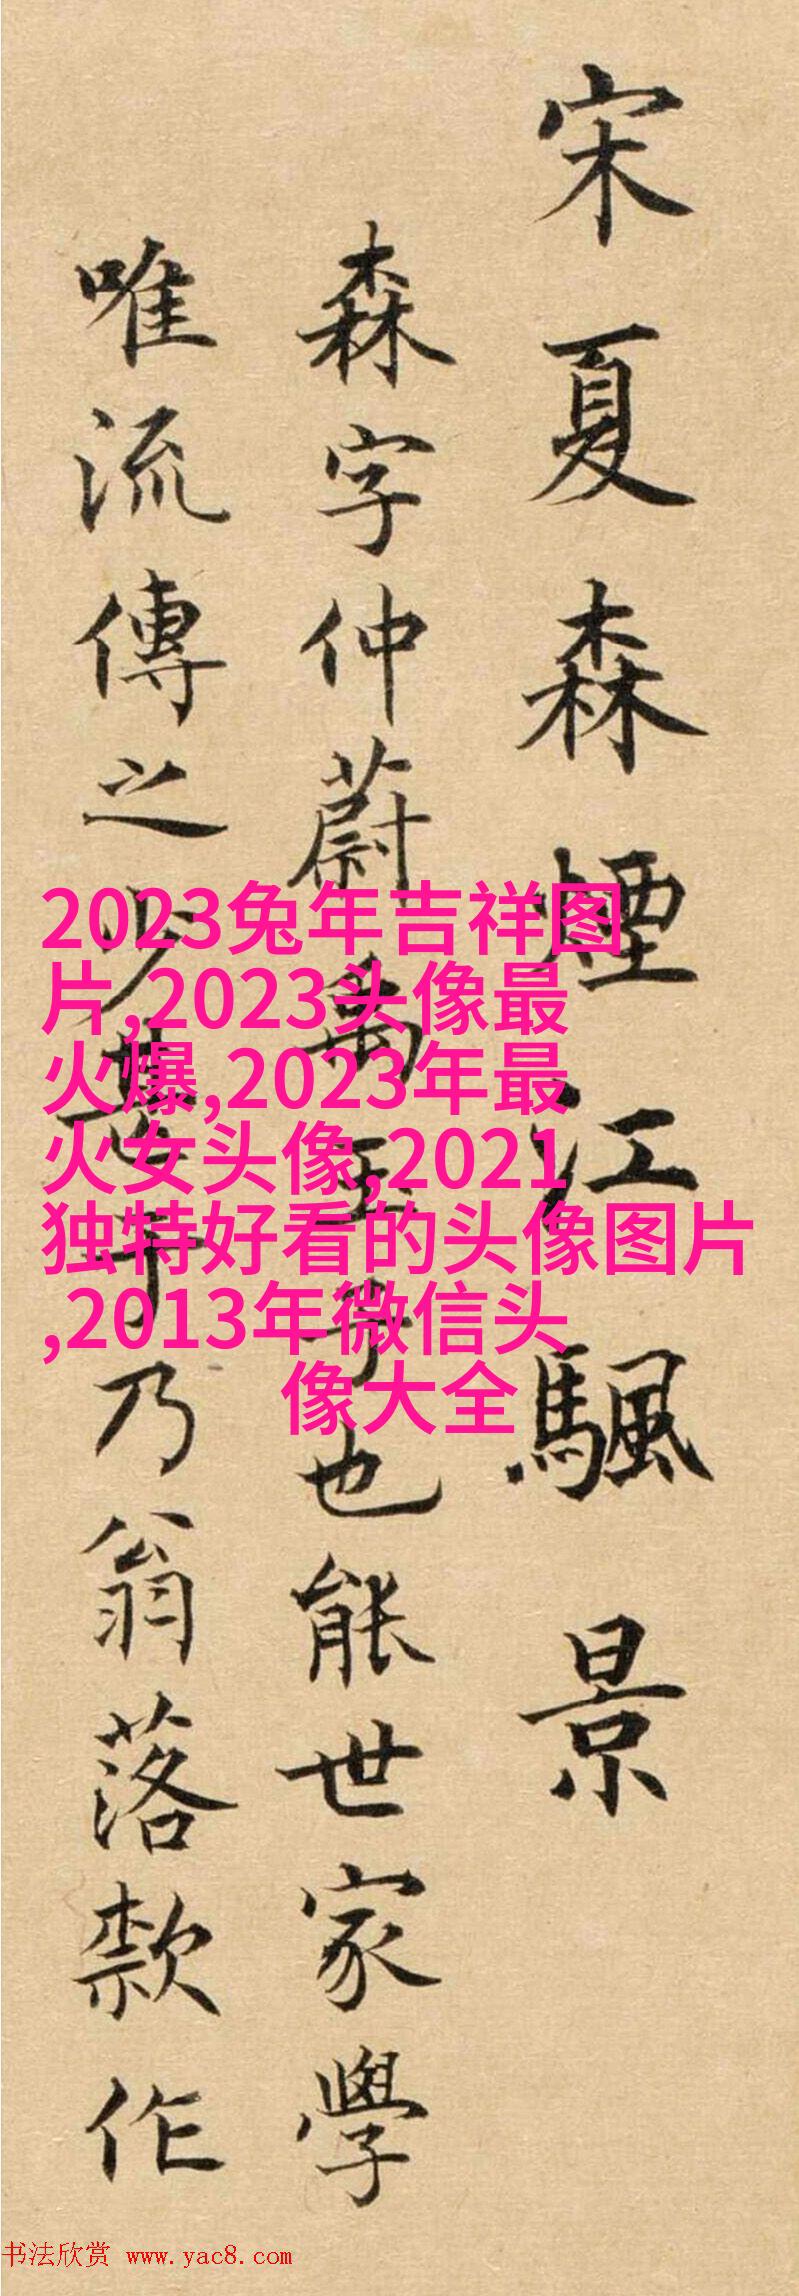 宋夏森煙江颿景
森字仲蔚禹玉子也能世家學
唯流傳之少甚于乃翁落款作
2023兔年吉祥图
片,2023头像最
火爆,2023年最
火女头像,2021
独特好看的头像图片
,2013年微信头
像大全
书法欣赏 www.yac8.com